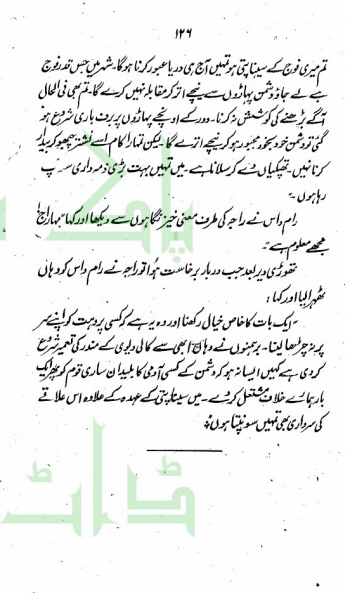 ۱۲۶
تم میری فوج کے سیناپتی ہو تمہیں آج ہی دریا عبور کرنا ہوگا۔ شہر میں جس قدر فوج
ہے لے جاؤ دشمن پہاڑوں سے نیچے اتر کر مقابلہ نہیں کرے گا۔ تم بھی فی الحال
آگے بڑھنے کی کوشش نہ کرنا۔ دور کے اونچے پہاڑوں پر برف باری شروع ہو
گئی تو دشمن خود بخود مجبور ہو کر نیچے اترے گا۔ لیکن تمہارا کام اسے نشتر چبھو کر بیدار
کرنا نہیں۔ تھپکیاں دے کر سلانا ہے۔ میں تمہیں بہت بڑی ذمہ داری سونپ
رہا ہوں۔"
رام داس نے راجہ کی طرف معنی خیز نگاہوں سے دیکھا اور کہا "مہاراج
مجھے معلوم ہے"
تھوڑی دیر بعد جب دربار برخاست ہوا تو راجہ نے رام داس کو وہاں
ٹھہرا لیا اور کہا :
"ایک بات کا خاص خیال رکھنا اور وہ یہ ہے کہ کسی پروہت کو اپنے سر
پر نہ چڑھا لینا۔ برہمنوں نے وہاں ابھی سے کالی دیوی کے مندر کی تعمیر شروع
کر دی ہے کہیں ایسا نہ ہو کہ دشمن کے کسی آدمی کا بلیدان ساری قوم کو پھر ایک
بار ہمارے خلاف مشتعل کر دے۔ میں سیناپتی کے عہدہ کے علاوہ اس علاقے
کی سرداری بھی تمہیں سونپتا ہوں"
پاک
ڈاٹ